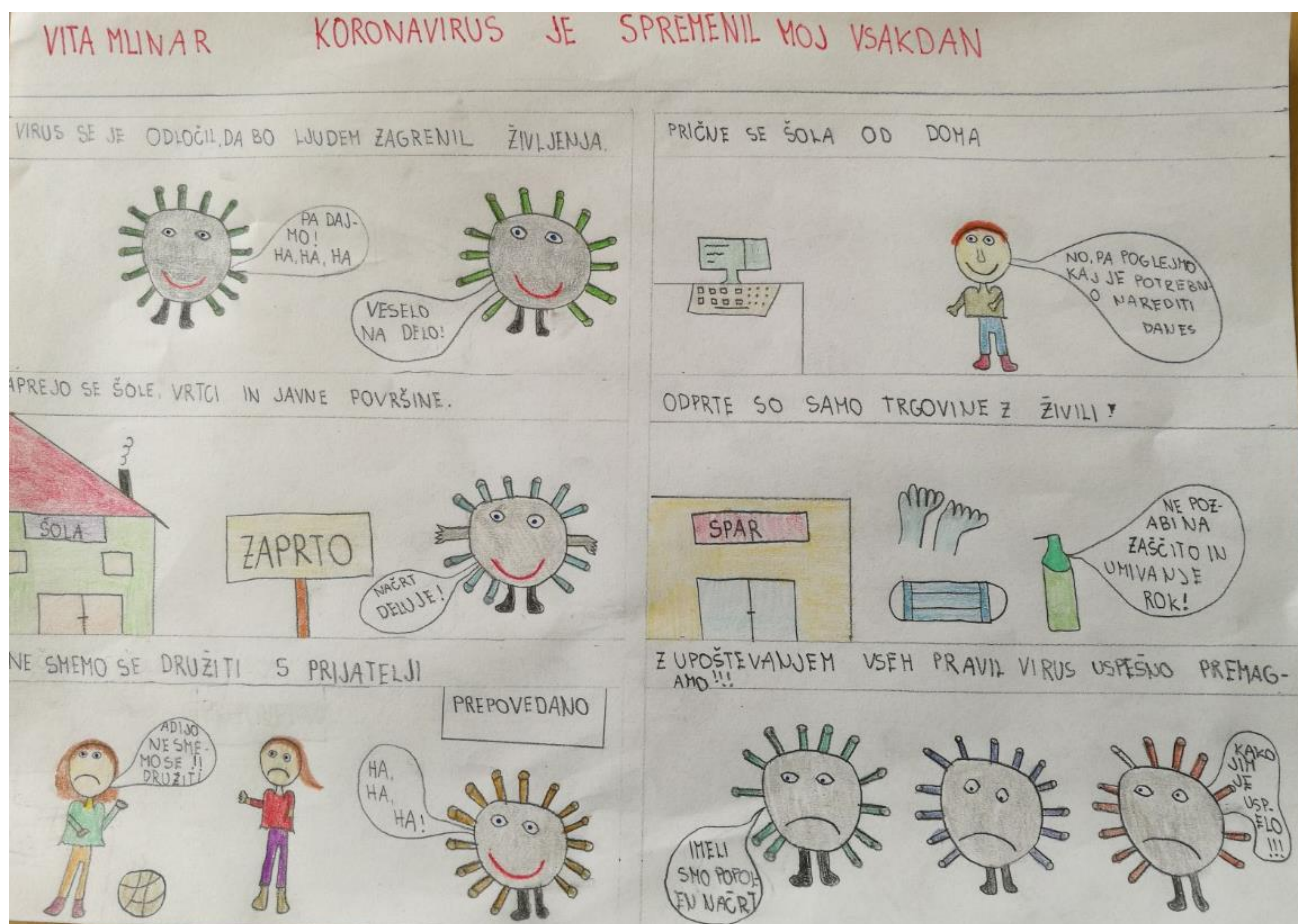 VITA MLINAR KORONAVIRUS JE SPREMENIL MOJ VSAKDAN
VIRUS SE JE ODLOČIL, DA BO LJUDEM ZAGRENIL ŽIVLJENJA.
PA DAJ-
MO!
HA, HA, HA
VESELO
NA DELO!
APREJO SE ŠOLE, VRTCI IN JAVNE POVRŠINE.
ŠOLA
ZAPRTO
NAČRT
DELUJE!
NE SMEMO SE DRUŽITI S PRIJATELJI
PREPOVEDANO
ADIJO
NE SME-
MO SE !!
DRUŽITI
HA,
HA,
HA!
PRIČNE SE ŠOLA OD DOMA
NO, PA POGLEJMO
KAJ JE POTREBN-
O NAREDITI
DANES
ODPRTE SO SAMO TRGOVINE Z ŽIVILI!
SPAR
NE POZ-
ABI NA
ZAŠČITO IN
UMIVANJE
ROK!
Z UPOŠTEVANJEM VSEH PRAVIL VIRUS USPEŠNO PREMAG-
AMO!!!
IMELI
SMO POPOL-
EN NAČRT
KAKO
JIM
JE
USP-
ELO
!!!